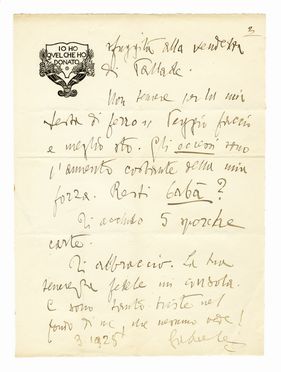 2
IO HO
QVEL CHE HO
DONATO
sfuggita alla vendetta
di Pallade.
Non temere per la mia
testa di ferro. Peggio faccio
e meglio sto. Gli eccessi sono
l'aumento costante della mia
forza. Resti
Ti accludo 5 sporche
carte.
Ti abbraccio. La tua
tenerezza fedele mi consola.
E sono tanto triste nel
fondo di me, che nessuno vede!
3. 1925
Gabriele